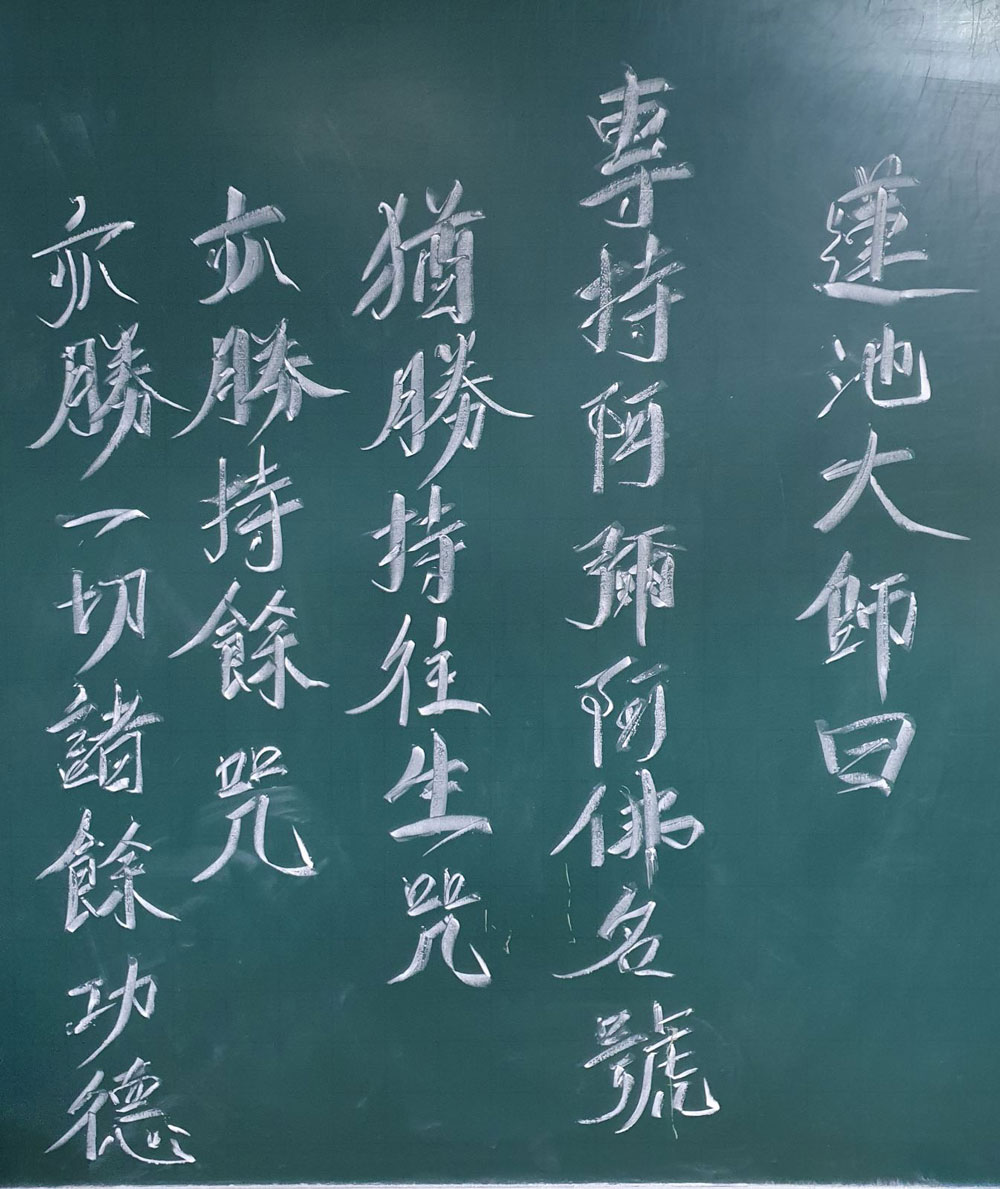 蓮池大師曰
專持阿彌阿佛名號
猶勝持往生咒
亦勝持餘咒
亦勝一切諸餘功德